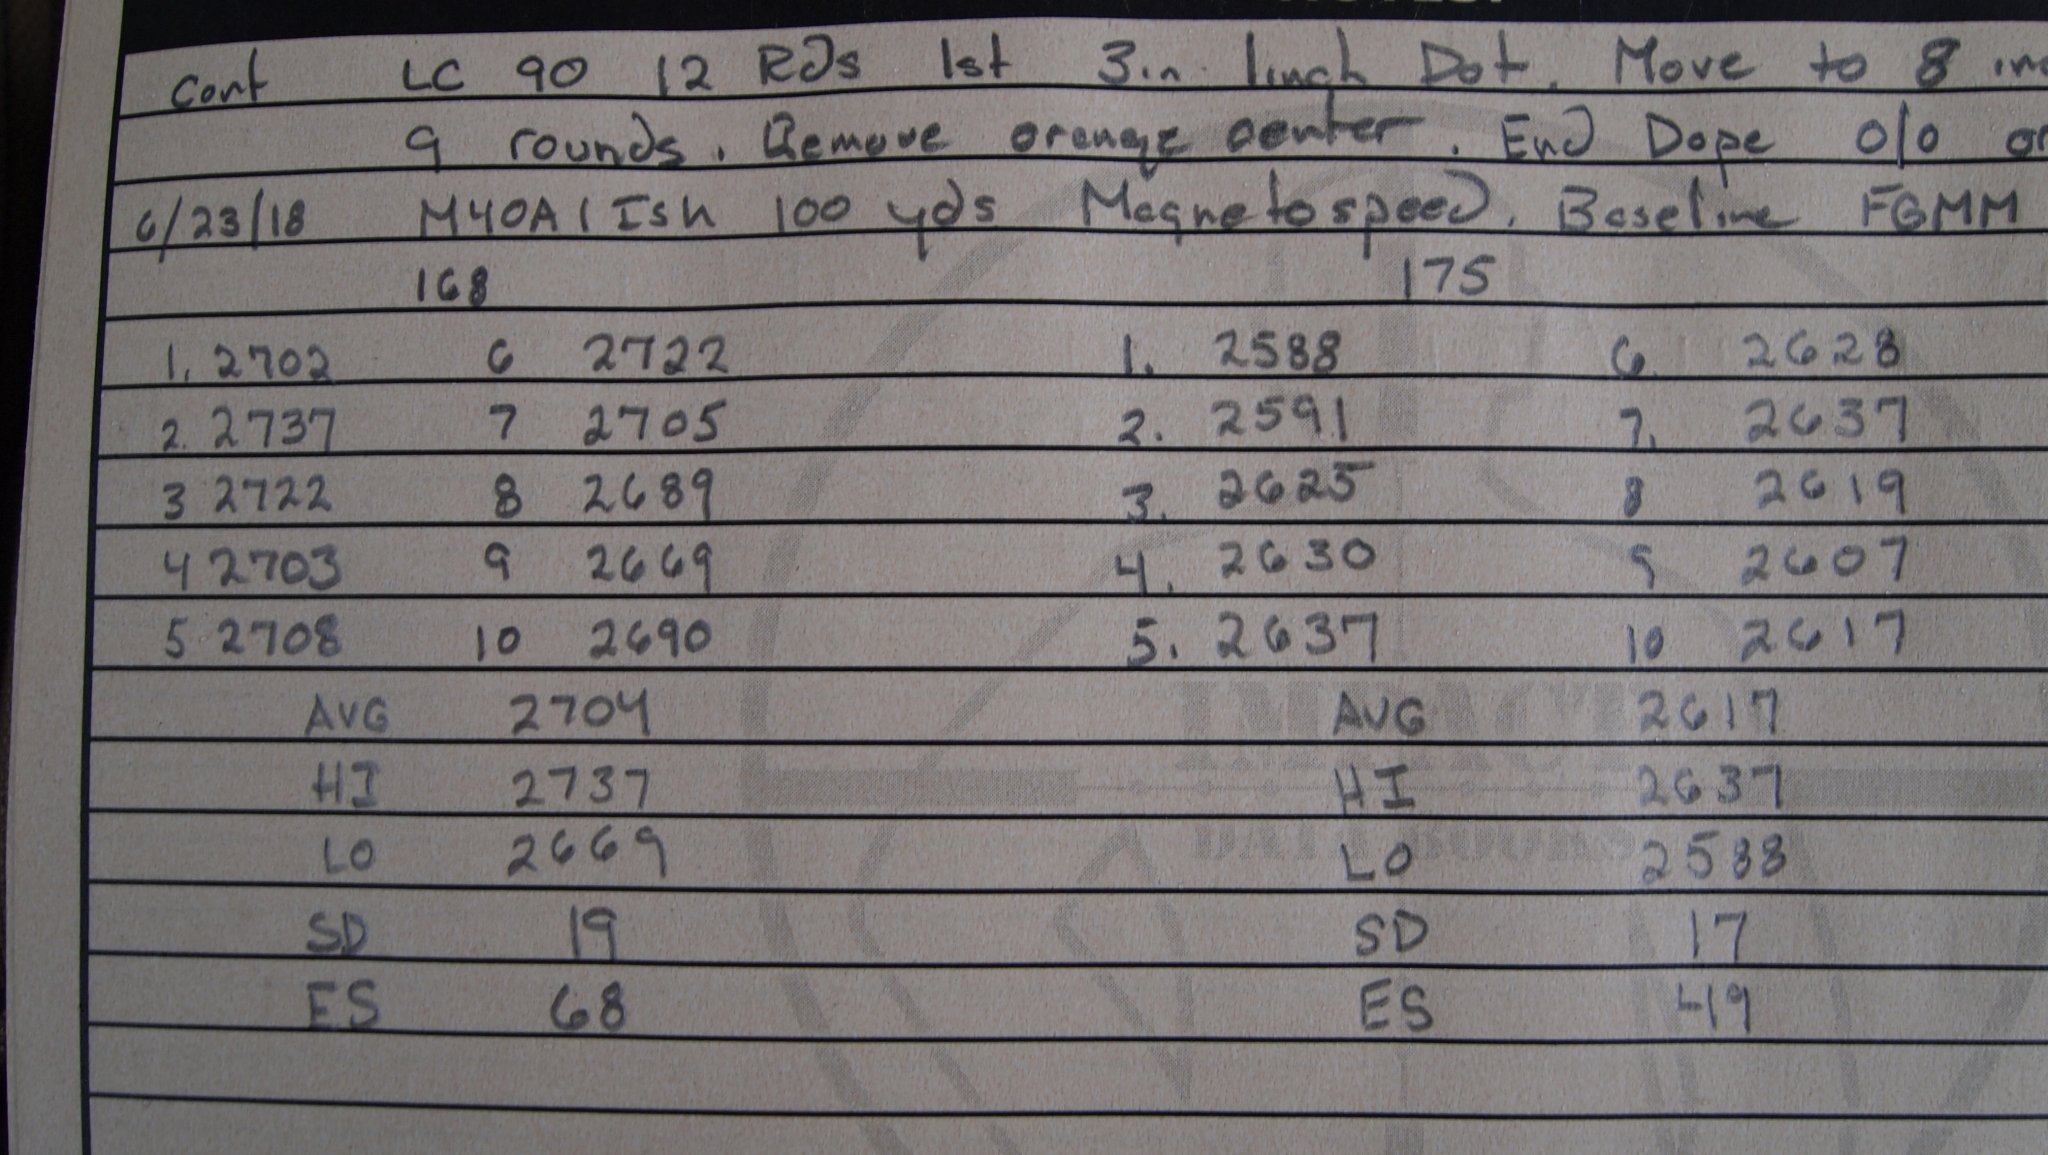 Cont LC 90 12 Rds 1st 3 in 1 inch Dot. Move to 8
9 rounds. Remove orange center. End Dope 0/0
6/23/18 M40A1 Ish 100 yds Magnetospeed. Baseline FGMM
168 175
1. 2702 6 2722 1. 2588 6. 2628
2. 2737 7 2705 2. 2591 7. 2637
3 2722 8 2689 3. 2625 8 2619
4 2703 9 2669 4. 2630 9 2607
5 2708 10 2690 5. 2637 10 2617
AVG 2704 AVG 2617
HI 2737 HI 2637
LO 2669 LO 2588
SD 19 SD 17
ES 68 ES 49